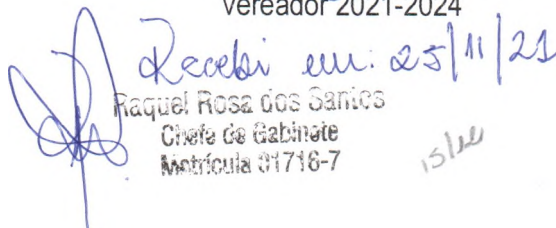 Vereador 2021-2024
Recebi em: 25/11/21
Raquel Rosa dos Santos
Chefe de Gabinete
Matrícula 01716-7